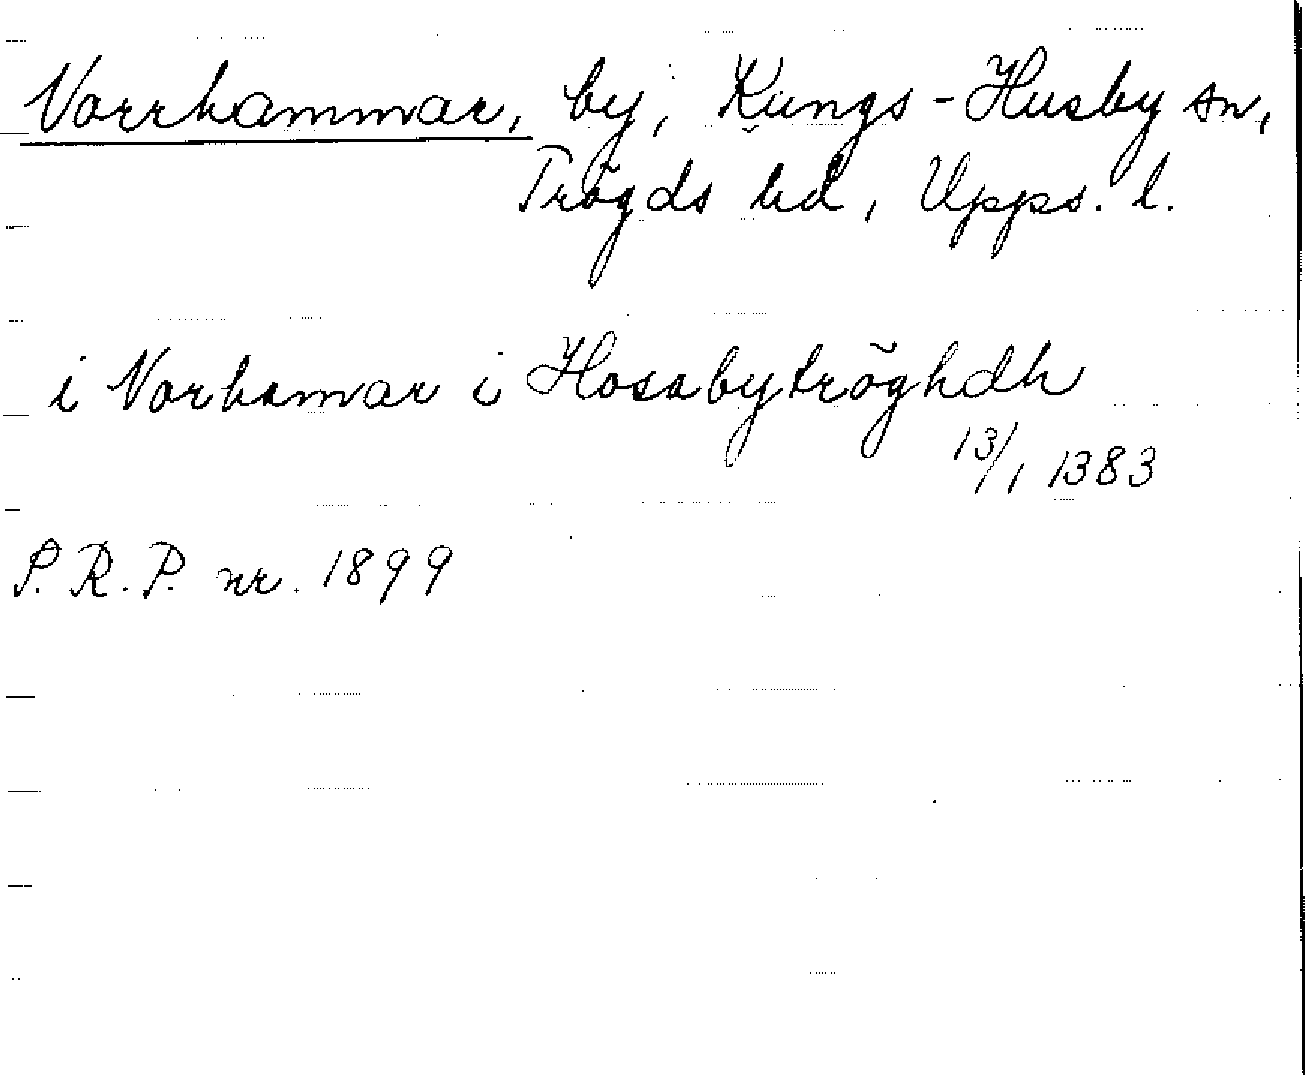 Vorrhammar, by, Kungs-Husby sn,
Trögds hd, Upps. l.
i Vorhamar i Hosabytröghdh
13/1 1383
S.R.P. nr. 1899